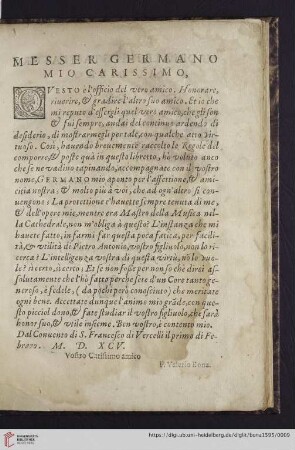 MESSER GERMANO
MIO CARISSIMO,
QVESTO è l'officio del vero amico, Honorare,
riuerire, & gradire l'altro suo amico. Et io che
mi reputo d'essergli quel vero amico, che gli son
& fui sempre, andai del continuo ardendo di
desiderio, di mostrarmegli per tale, con qualche atto vir-
tuoso. Così, hauendo breuemente raccolto le Regole del
comporre, & posto quà in questo libretto, ho voluto anco
che se ne vadino caminando, accompagnate con il vostro
nome, GERMANO mio aponto per l'affettione, & ami-
citia nostra: & molto più à voi, che ad ogn'altro si con-
uengono: La protettione c'haueste sempre tenuta di me,
& dell'opere mie, mentre era Mastro della Musica nel-
la Cathedrale, non m'obliga à questo? L'instanza che mi
hauete fatto, in farmi far questa poca fatica, per facili-
tà, & vtilità di Pietro Antonio, vostro figliuolo, non lo ri-
cerca? L'intelligenza vostra di questa virtù, nō lo vuo-
le? certo, sì certo: Et se non fosse per non sò che dirsi as-
solutamente che l'hò fatto perche sete d'un Core tanto ge-
neroso, è fidele, (da poche però conosciuto) che meritate
ogni bene. Accettate dunque l'animo mio grāde, con que-
sto picciol dono, & fate studiar il vostro figliuolo, che sarà
honor suo, & vtile insieme. Ben vostro, è contento mio.
Dal Conuento di S. Francesco di Vercelli il primo di Fe-
braro. M. D. XCV.
Vostro Carissimo amico
F. Valerio Bona.
UNIVERSITÄTS-
BIBLIOTHEK
HEIDELBERG
https://digi.ub.uni-heidelberg.de/diglit/bona1595/0009